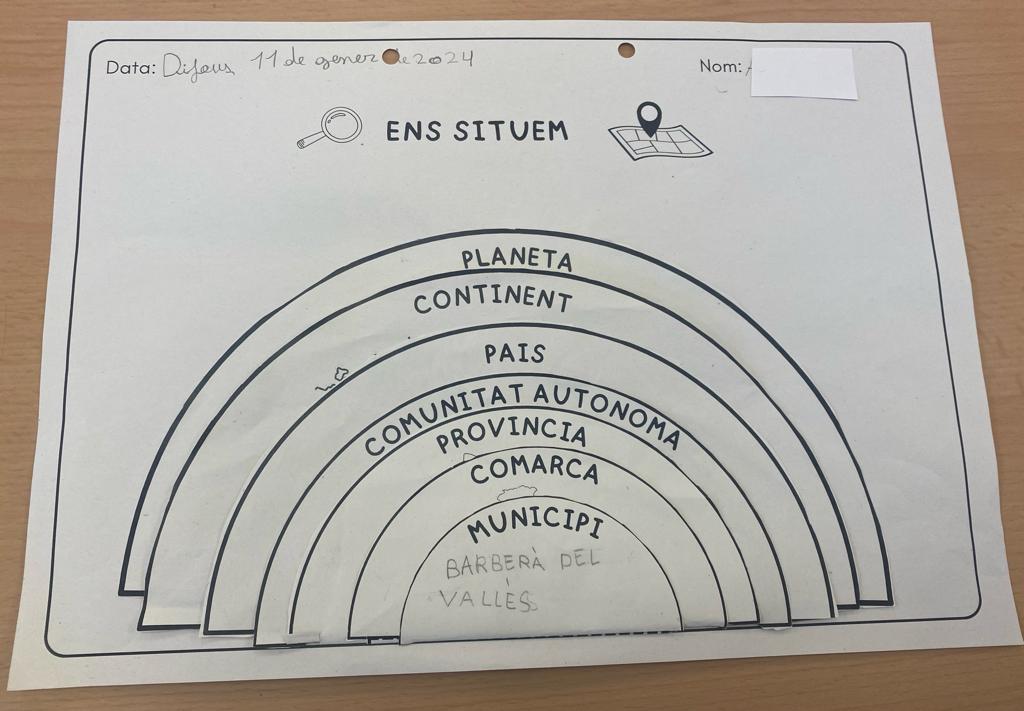 Data: Dijous 11 de gener de 2024
Nom:
ENS SITUEM
PLANETA
CONTINENT
PAIS
COMUNITAT AUTONOMA
PROVINCIA
COMARCA
MUNICIPI
BARBERÀ DEL
VALLÈS